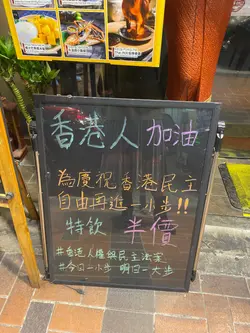 香港人 加油
為慶祝香港民主
自由再進一小步!!
特飲 半價
#香港人權與民主法案
#今日一小步 明日一大步